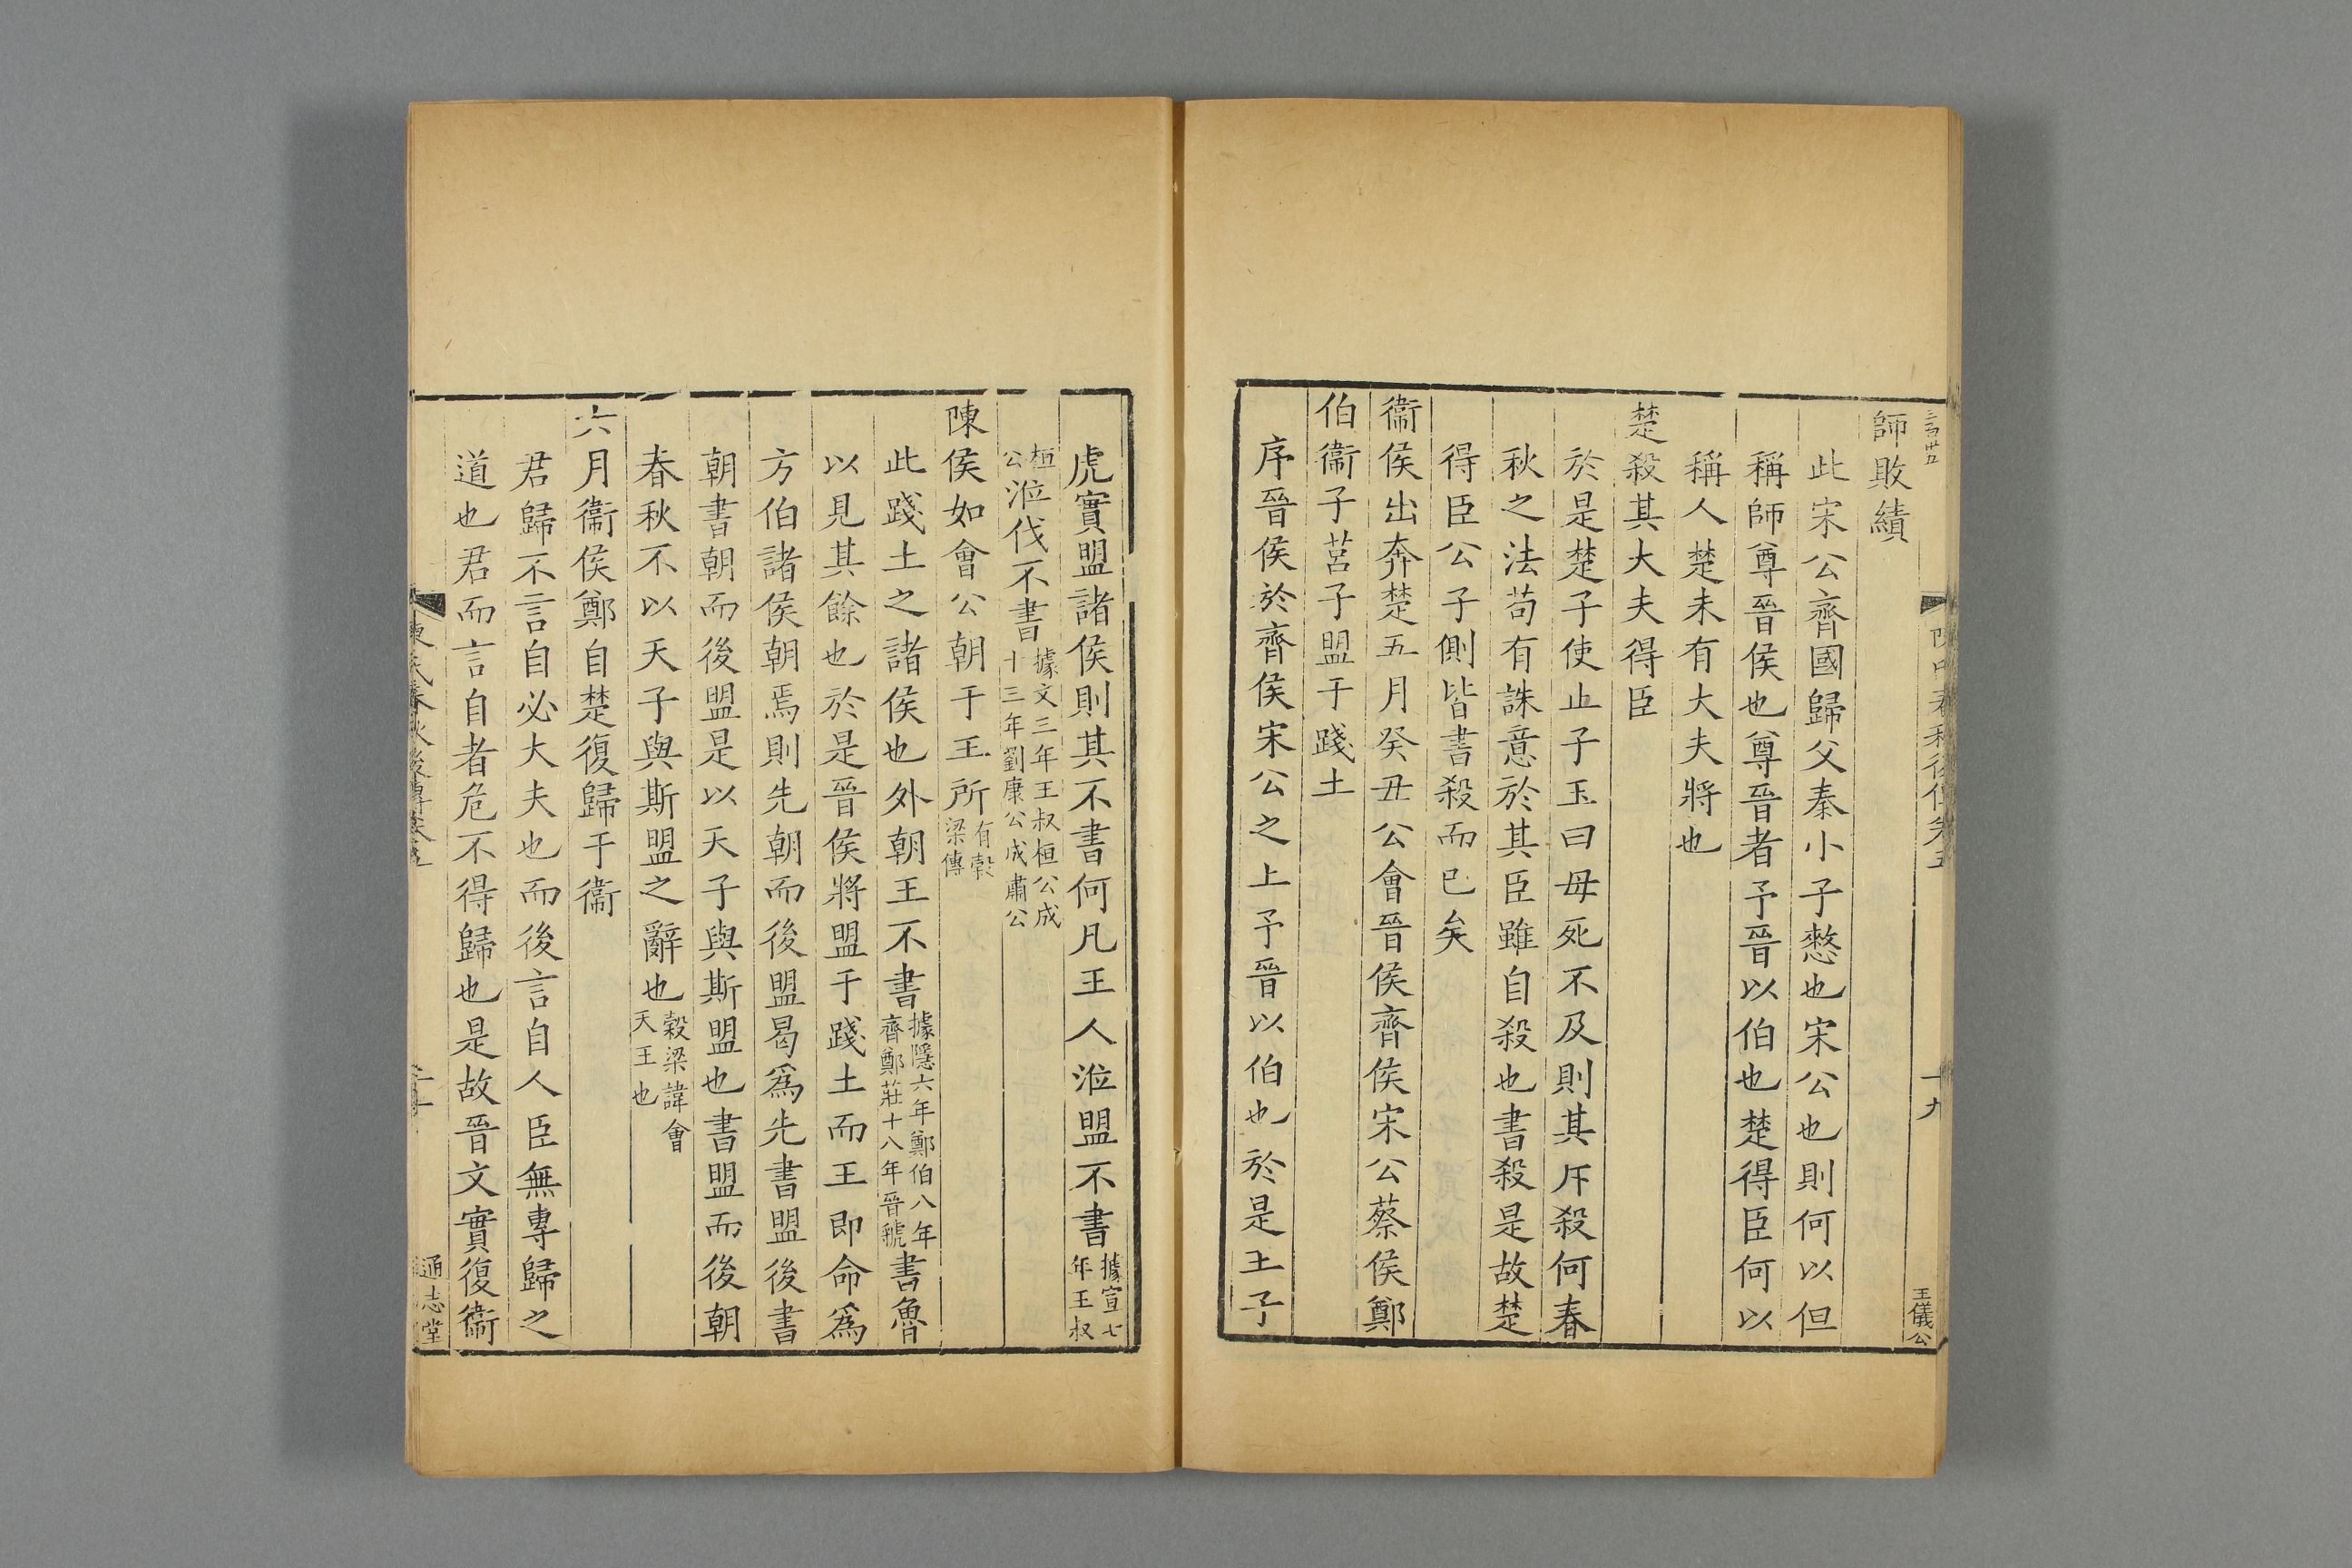 師敗績
此宋公齊國歸父秦小子憗也宋公也則何以但
稱師尊晉侯也尊晉者予晉以伯也楚得臣何以
稱人楚未有大夫將也
楚殺其大夫得臣
於是楚子使止子玉曰毋死不及則其斥殺何春
秋之法苟有誅意於其臣雖自殺也書殺是故楚
得臣公子側皆書殺而已矣
衞侯出奔楚五月癸丑公會晉侯齊侯宋公蔡侯鄭
伯衞子莒子盟于踐土
序晉侯於齊侯宋公之上予晉以伯也於是王子
十九
王儀公
虎實盟諸侯則其不書何凡王人涖盟不書據宣七年王叔
桓公涖伐不書據文三年王叔桓公成十三年劉康公成肅公
陳侯如會公朝于王所有穀梁傳
此踐土之諸侯也外朝王不書據隱六年鄭伯八年齊鄭莊十八年晉虢書魯
以見其餘也於是晉侯將盟于踐土而王即命爲
方伯諸侯朝焉則先朝而後盟曷爲先書盟後書
朝書朝而後盟是以天子與斯盟也書盟而後朝
春秋不以天子與斯盟之辭也穀梁諱會天王也
六月衞侯鄭自楚復歸于衞
君歸不言自必大夫也而後言自人臣無專歸之
道也君而言自者危不得歸也是故晉文實復衞
通志堂